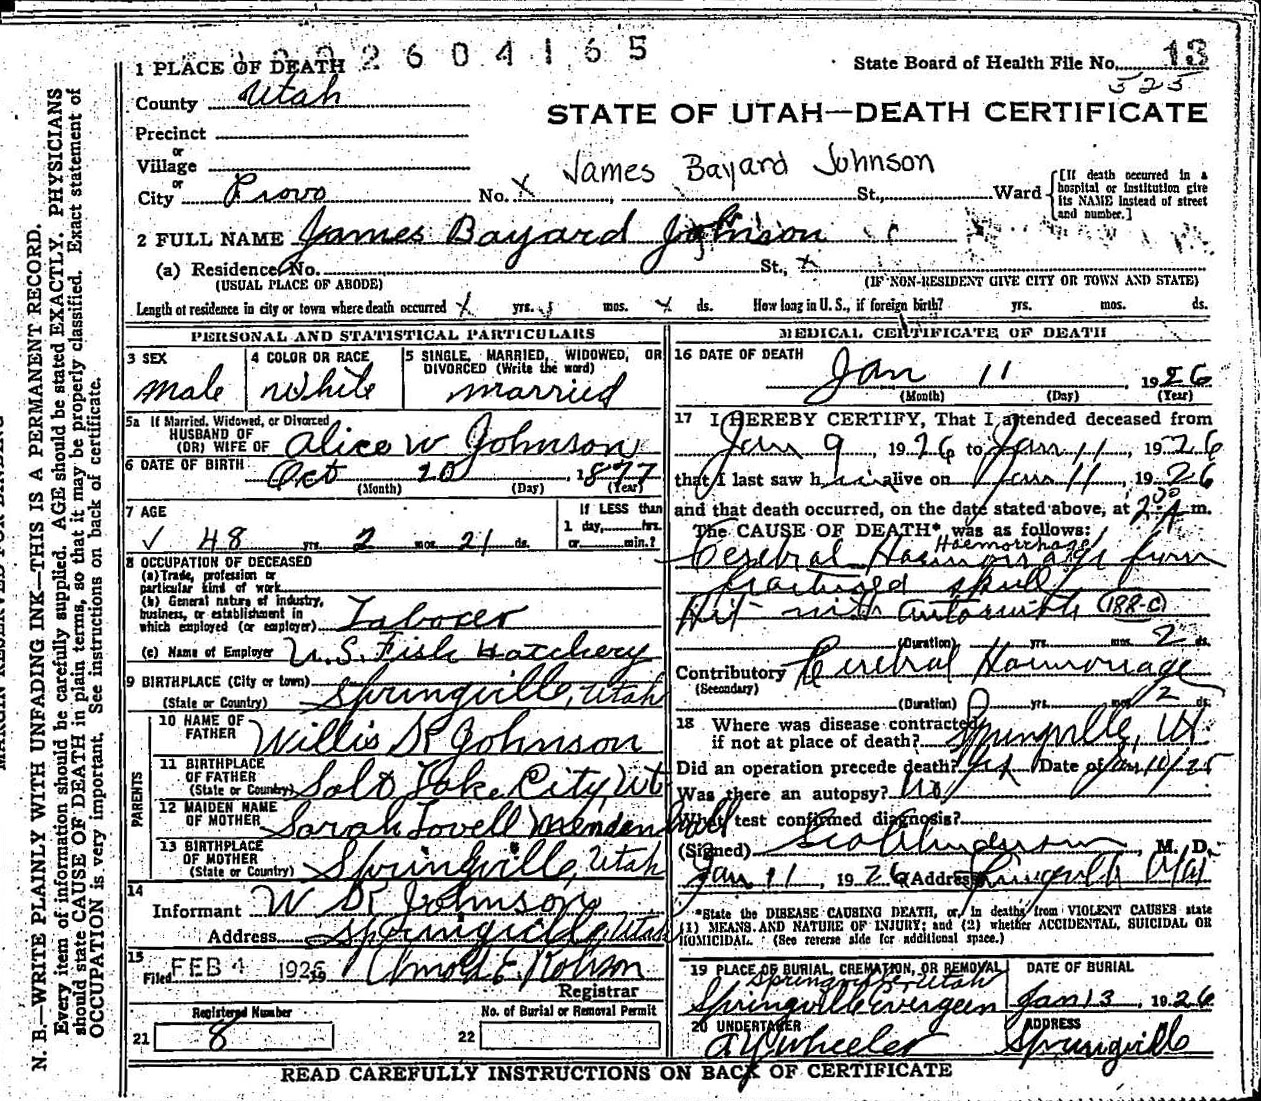 1 PLACE OF DEATH 2604165
State Board of Health File No. 13
525
County Utah
STATE OF UTAH—DEATH CERTIFICATE
Precinct
or
Village
James Bayard Johnson
or
City Provo No. x St., Ward
[If death occurred in a hospital or institution give its NAME instead of street and number.]
2 FULL NAME James Bayard Johnson
(a) Residence, No. St., x
(USUAL PLACE OF ABODE) (IF NON-RESIDENT GIVE CITY OR TOWN AND STATE)
Length of residence in city or town where death occurred yrs. mos. ds. How long in U. S., if foreign birth? yrs. mos. ds.
PERSONAL AND STATISTICAL PARTICULARS
3 SEX
male
4 COLOR OR RACE
White
5 SINGLE, MARRIED, WIDOWED, OR DIVORCED (Write the word)
married
5a If Married, Widowed, or Divorced
HUSBAND OF
(OR) WIFE OF Alice W Johnson
6 DATE OF BIRTH Oct 20, 1877
(Month) (Day) (Year)
7 AGE
48 yrs. 2 mos. 21 ds.
If LESS than
1 day, hrs.
or min.?
8 OCCUPATION OF DECEASED
(a) Trade, profession or
particular kind of work
(b) General nature of industry,
business, or establishment in
which employed (or employer) Laborer
(c) Name of Employer U.S. Fish Hatchery
9 BIRTHPLACE (City or town)
(State or Country) Springville, Utah
PARENTS
10 NAME OF
FATHER Willis K Johnson
11 BIRTHPLACE
OF FATHER
(State or Country) Salt Lake City, Ut
12 MAIDEN NAME
OF MOTHER Sarah Lovell Mendenhall
13 BIRTHPLACE
OF MOTHER
(State or Country) Springville, Utah
14
Informant W K Johnson
Address Springville, Utah
15
Filed FEB 4 1926 Arnold E. Robison
Registrar
Registered Number
21 8
No. of Burial or Removal Permit
22
MEDICAL CERTIFICATE OF DEATH
16 DATE OF DEATH
Jan 11, 1926
(Month) (Day) (Year)
17 I HEREBY CERTIFY, That I attended deceased from
Jan 9, 1926 to Jan 11, 1926
that I last saw him alive on Jan 11, 1926
and that death occurred, on the date stated above, at 2:00 A m.
The CAUSE OF DEATH* was as follows:
Haemorrhage
Cerebral Haemorrhage from
fractured skull
Hit with 188-c
(Duration) yrs. mos. 2 ds.
Contributory Cerebral Haemorrhage
(Secondary)
(Duration) yrs. mos. 2 ds.
18 Where was disease contracted
if not at place of death? Springville, Ut
Did an operation precede death? Yes Date of Jan 10/25
Was there an autopsy? No
What test confirmed diagnosis?
(Signed) Geo Anderson, M. D.
Jan 11, 1926 (Address) Springville Utah
*State the DISEASE CAUSING DEATH, or, in deaths from VIOLENT CAUSES state
(1) MEANS AND NATURE OF INJURY; and (2) whether ACCIDENTAL, SUICIDAL OR
HOMICIDAL. (See reverse side for additional space.)
19 PLACE OF BURIAL, CREMATION, OR REMOVAL
Springville, Utah
Springville Evergreen
DATE OF BURIAL
Jan 13, 1926
20 UNDERTAKER
A Y Wheeler
ADDRESS
Springville
READ CAREFULLY INSTRUCTIONS ON BACK OF CERTIFICATE
N. B.—WRITE PLAINLY WITH UNFADING INK—THIS IS A PERMANENT RECORD.
Every item of information should be carefully supplied. AGE should be stated EXACTLY. PHYSICIANS
should state CAUSE OF DEATH in plain terms, so that it may be properly classified. Exact statement of
OCCUPATION is very important. See instructions on back of certificate.